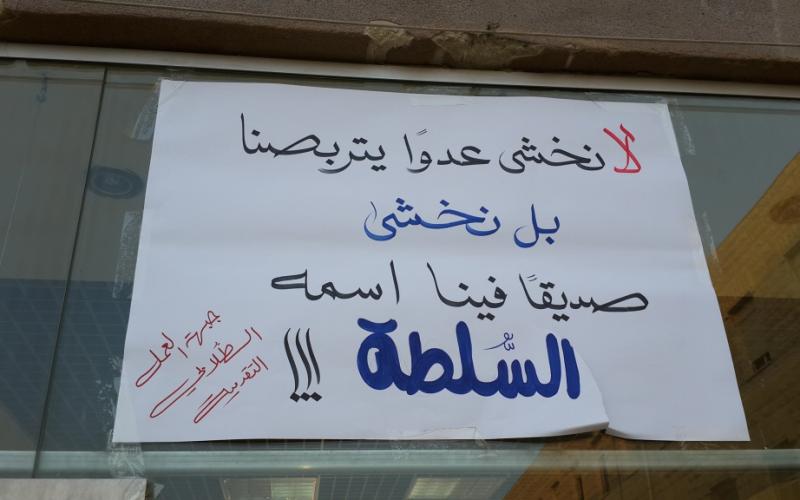 لا نخشى عدوًا يتربصنا
بل نخشى
صديقًا فينا اسمه
السُّلطة !!!
جبهة العمل
الطلابي
التقدمية